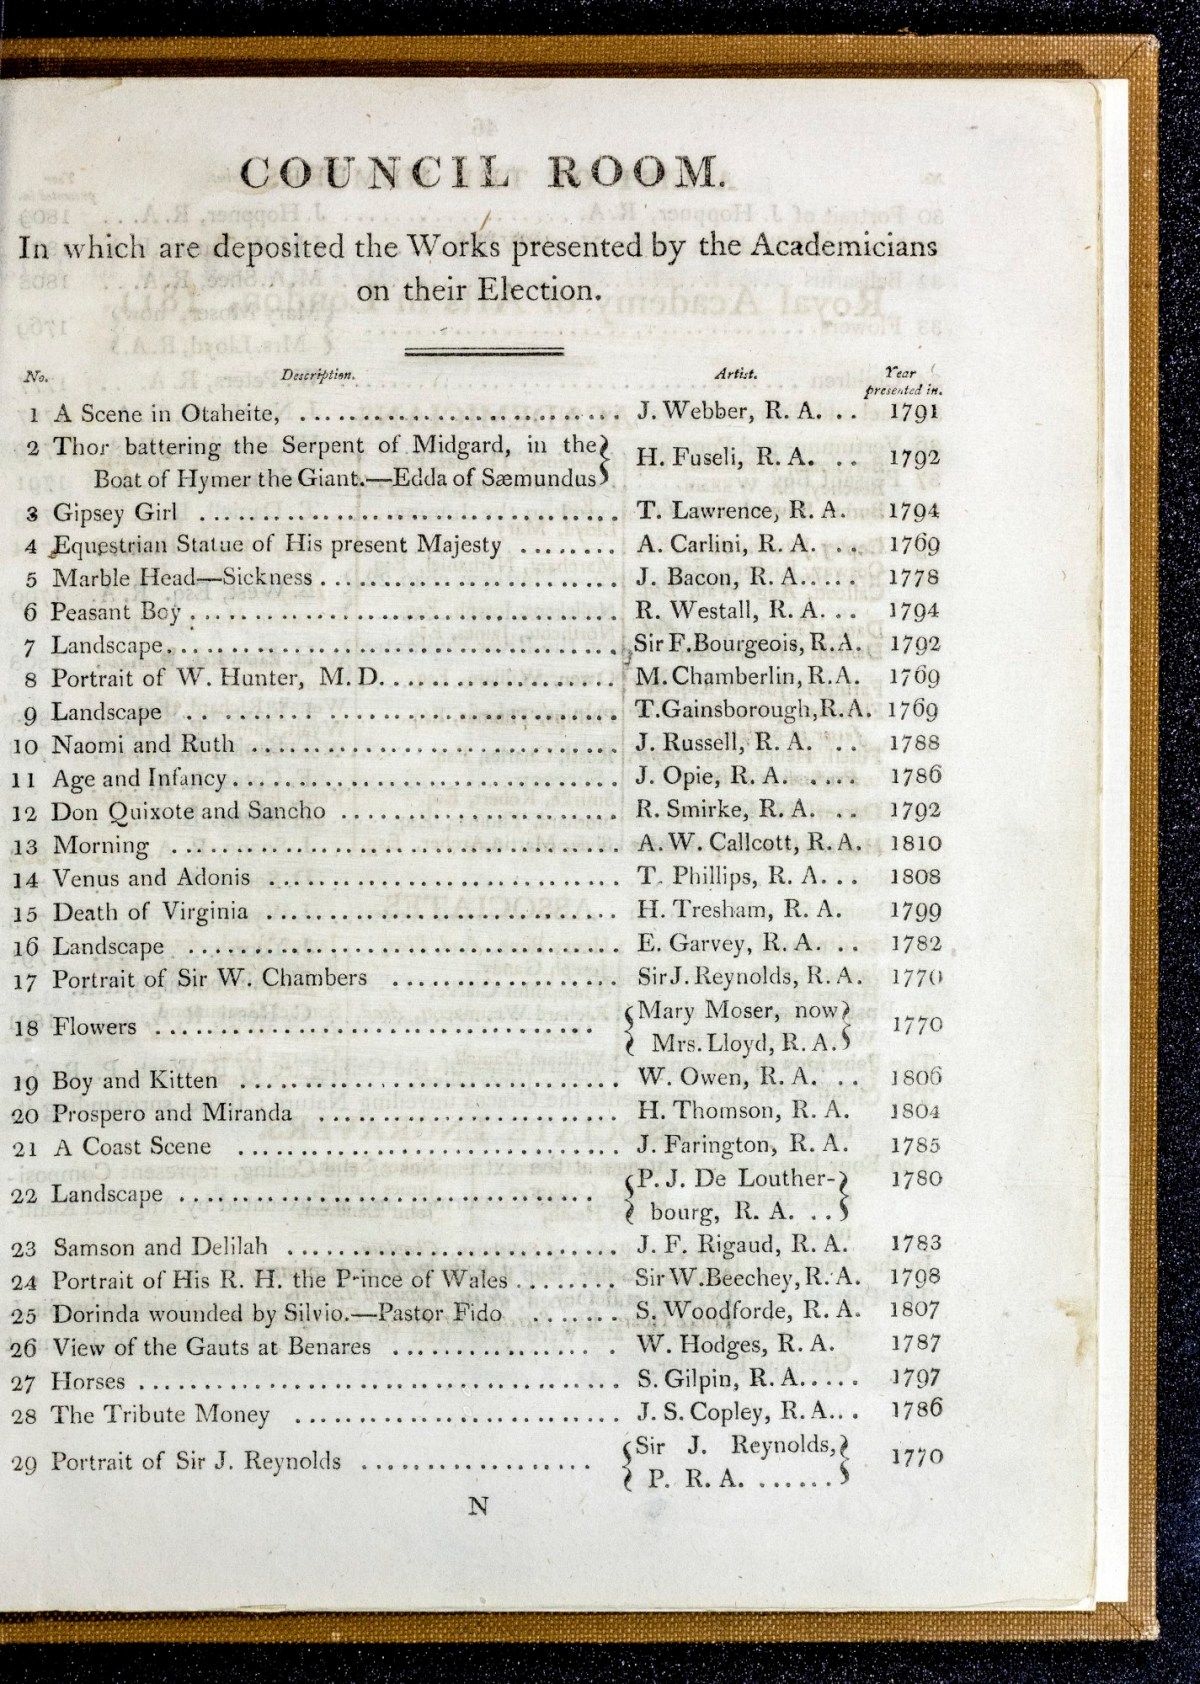 COUNCIL ROOM.
In which are deposited the Works presented by the Academicians
on their Election.
No. Description. Artist. Year presented in.
1 A Scene in Otaheite, ............................ J. Webber, R. A. . . 1791
2 Thor battering the Serpent of Midgard, in the
Boat of Hymer the Giant.—Edda of Sæmundus H. Fuseli, R. A. . . 1792
3 Gipsey Girl .................................... T. Lawrence, R. A. 1794
4 Equestrian Statue of His present Majesty ........ A. Carlini, R. A. . . 1769
5 Marble Head—Sickness ......................... J. Bacon, R. A. .... 1778
6 Peasant Boy .................................... R. Westall, R. A. . . 1794
7 Landscape...................................... Sir F. Bourgeois, R. A. 1792
8 Portrait of W. Hunter, M. D. .................... M. Chamberlin, R. A. 1769
9 Landscape .................................... T. Gainsborough, R. A. 1769
10 Naomi and Ruth ............................... J. Russell, R. A. . . 1788
11 Age and Infancy ................................ J. Opie, R. A. .... 1786
12 Don Quixote and Sancho ....................... R. Smirke, R. A. . . 1792
13 Morning ...................................... A. W. Callcott, R. A. 1810
14 Venus and Adonis ............................. T. Phillips, R. A. . . 1808
15 Death of Virginia .............................. H. Tresham, R. A. 1799
16 Landscape .................................... E. Garvey, R. A. . . 1782
17 Portrait of Sir W. Chambers .................... Sir J. Reynolds, R. A. 1770
18 Flowers .................................... Mary Moser, now
Mrs. Lloyd, R. A. 1770
19 Boy and Kitten ............................... W. Owen, R. A. . . 1806
20 Prospero and Miranda ......................... H. Thomson, R. A. 1804
21 A Coast Scene ................................ J. Farington, R. A. 1785
22 Landscape .................................. P. J. De Louther-
bourg, R. A. . . 1780
23 Samson and Delilah ........................... J. F. Rigaud, R. A. 1783
24 Portrait of His R. H. the Prince of Wales ........ Sir W. Beechey, R. A. 1798
25 Dorinda wounded by Silvio.—Pastor Fido ....... S. Woodforde, R. A. 1807
26 View of the Gauts at Benares .................. W. Hodges, R. A. 1787
27 Horses ....................................... S. Gilpin, R. A. .... 1797
28 The Tribute Money ........................... J. S. Copley, R. A. . . 1786
29 Portrait of Sir J. Reynolds .................... Sir J. Reynolds,
P. R. A. ....... 1770
N